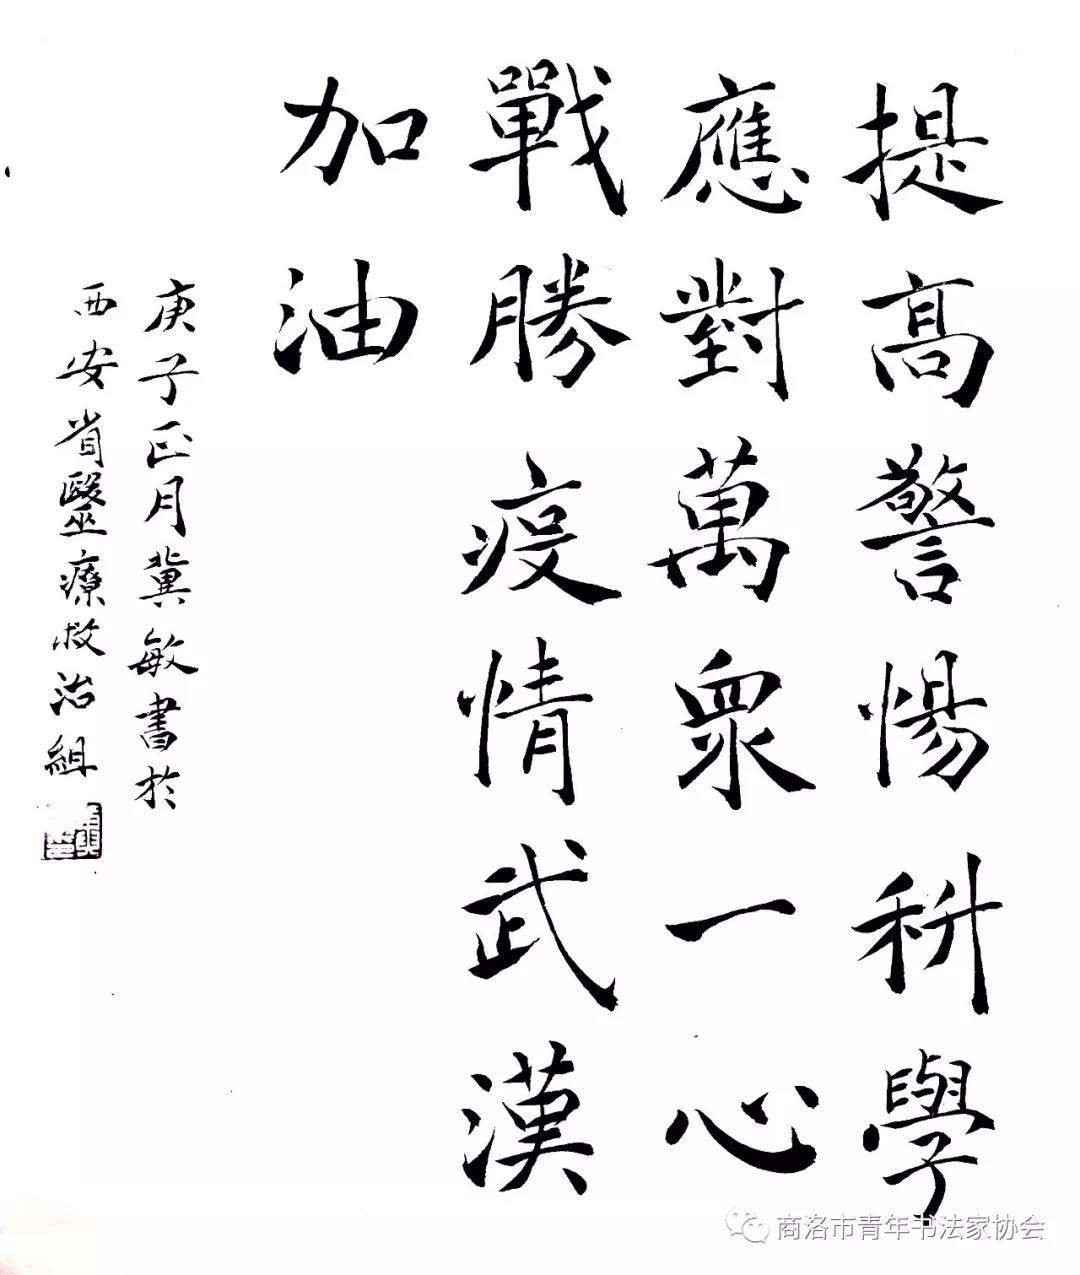 提高警惕科學
應對萬眾一心
戰勝疫情武漢
加油
庚子正月冀敏書於
西安省毉療救治組
商洛市青年书法家协会